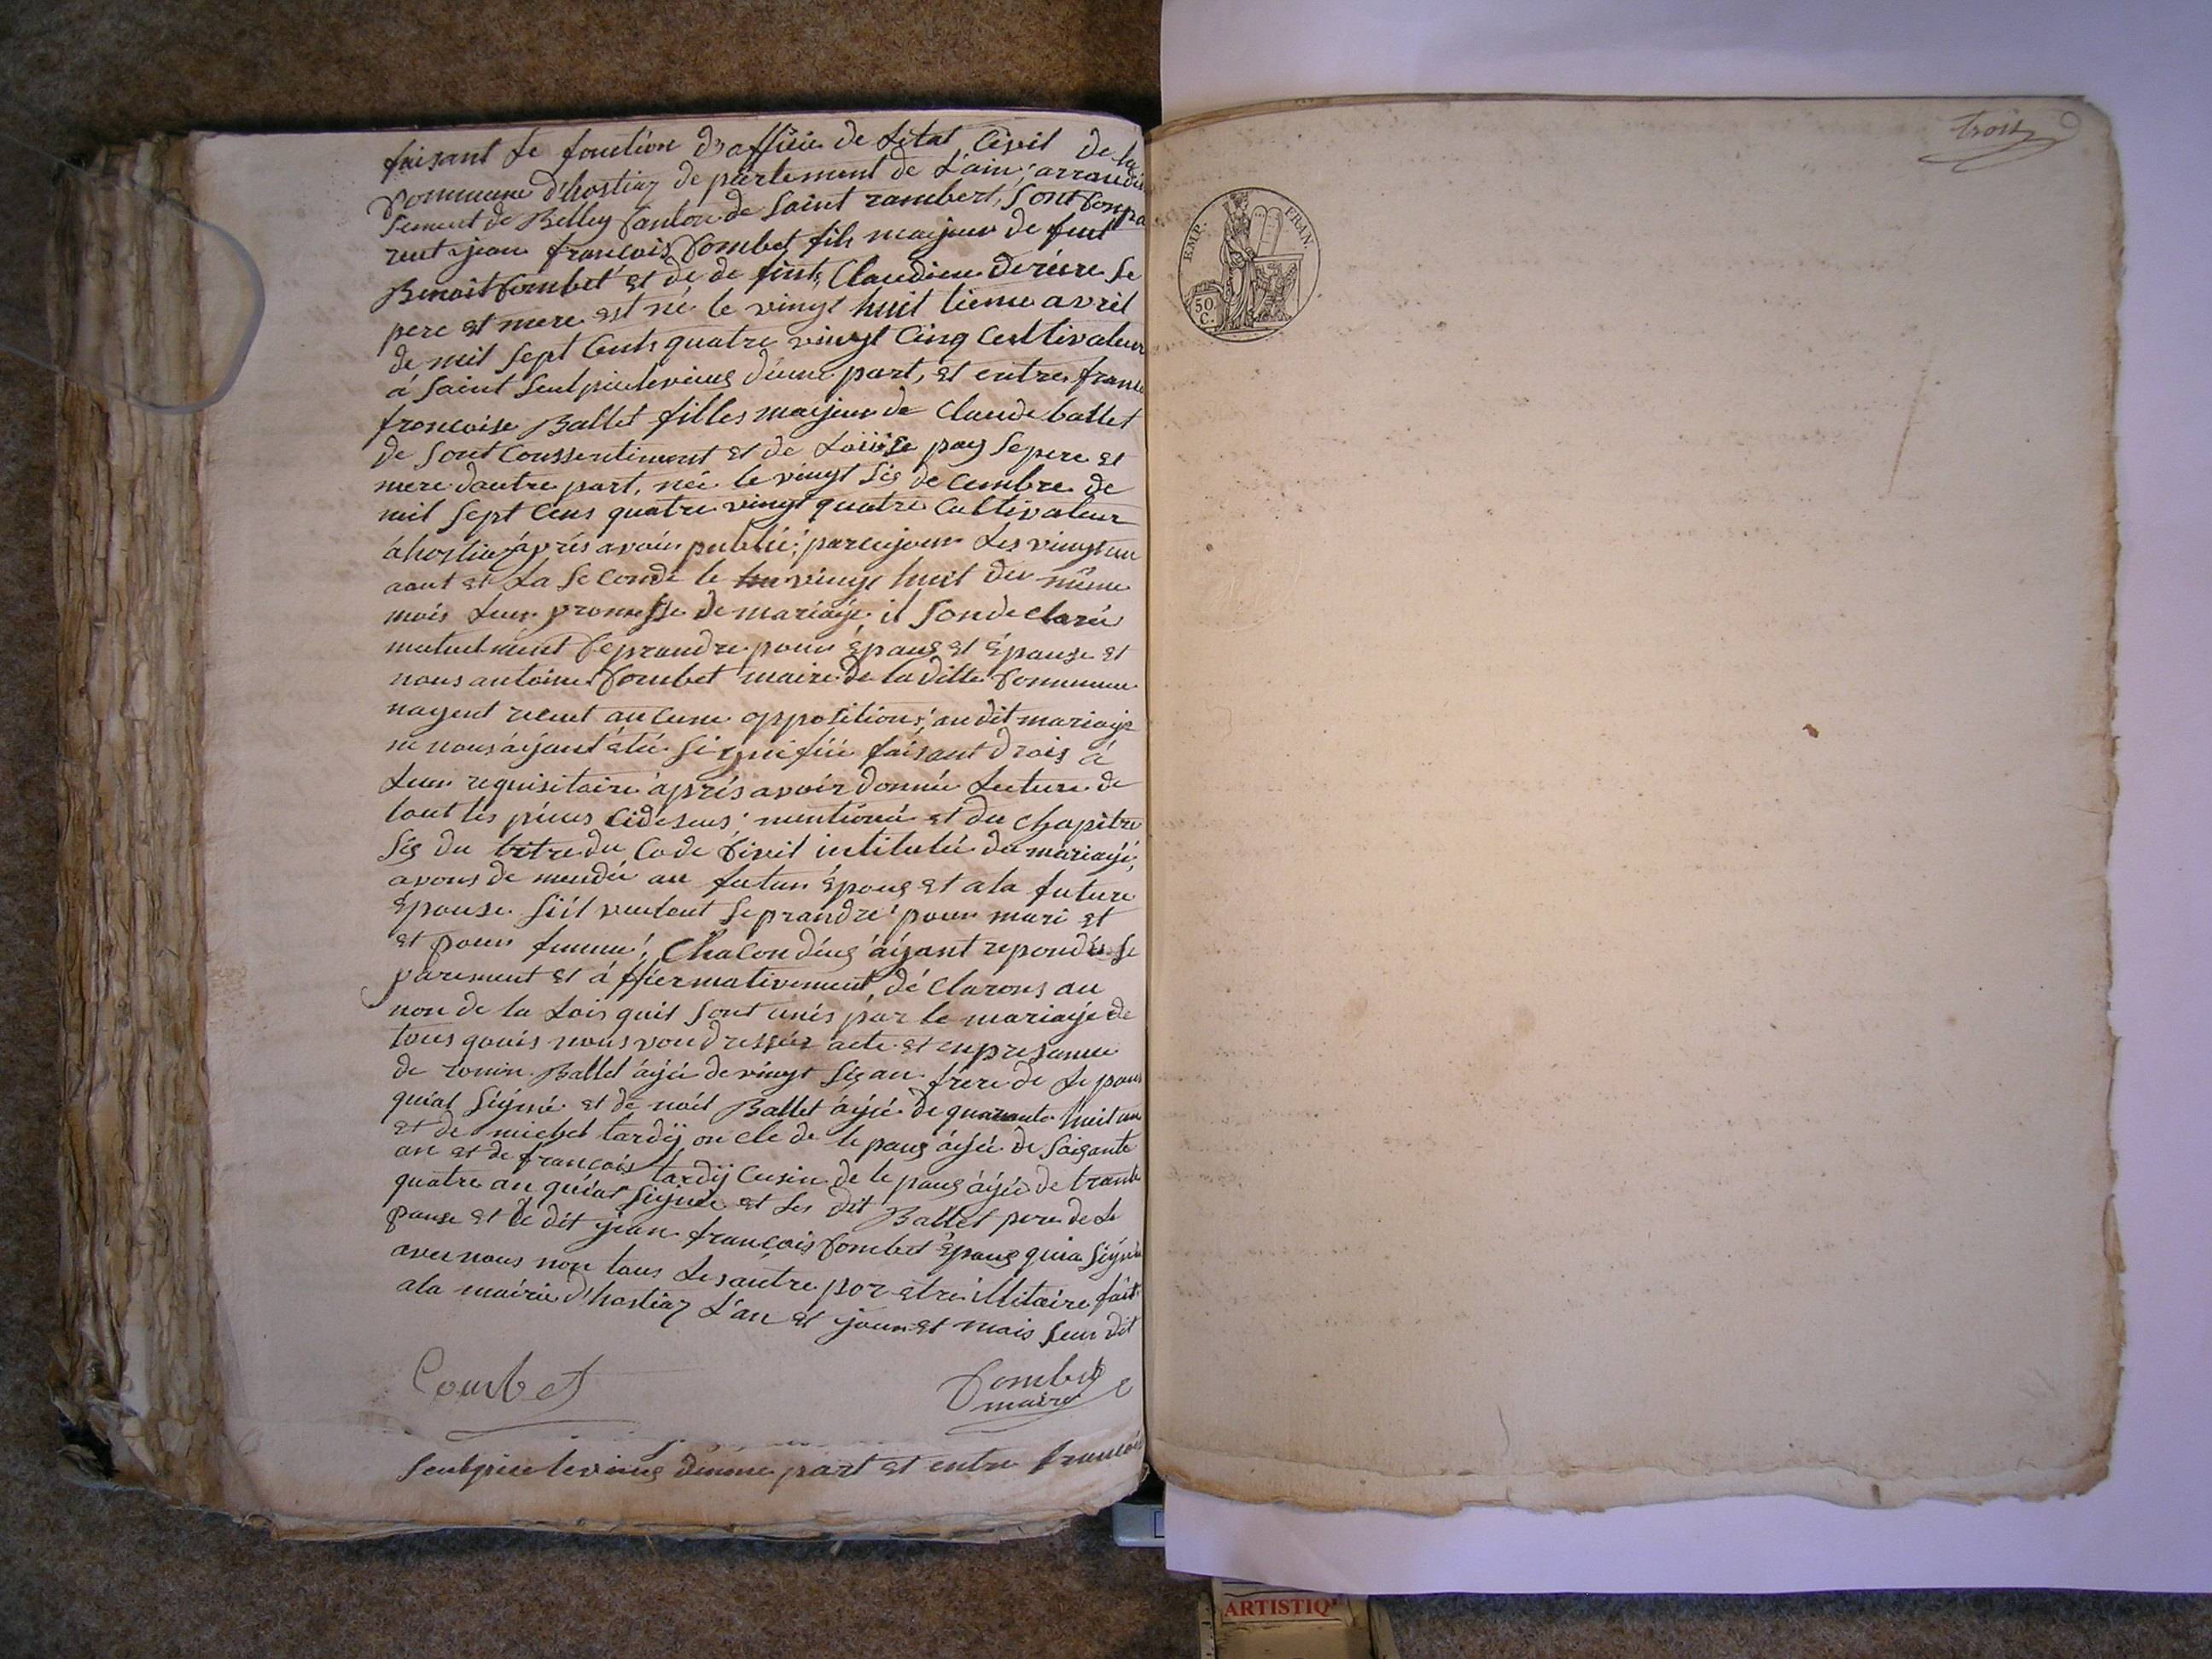 faisant le fonction d'officie de Letat Civil de la
Commune d'hostiaz departement de L'ain; arrondis
sement de Belley Canton de saint rambert, sont Compa
rut jean francois Combet fils maijeur de fut
Benoit Combet et de de fint Claudine Deriere se
pere et mere est né le vingt huit tieme avril
de mil sept Cents quatre vingt Cinq Cultivateur
á saint Seulpicelevieux d'eune part, et entre
francoise Ballet filles maijeur de Claude ballet
de sont Conssentiment et de Louise pay se pere et
mere d'autre part, néé le vingt sis de cembre de
mil sept Cens quatre vingt quatre Cultivateur
á hostiaz áprés avoir publié; les vingt un
aout et La se Conde le vingt huit du même
mois Leur promesse de mariaije il son de Claréé
mutuelment se prandre pour épous et épouse et
nous antoine Combet maire de la ditte Commune
nayent recuet au Cune oppositions; au dit mariaije
ne nous áijant étéé signifiéé faisant drois á
Leur requisitoire áprés avoir donnéé Lecture de
tout les piéces Cidesus; mentionéé et du Chapitre
sis du titre du Code Civil intituléé du mariaijé,
avons de mendéé au futur épous et a la future
épouse si il veulent se prandre pour mari et
et pour femme; Chacon d'eus áijant repondu se
parement et áffiermativement, dé Clarons au
non de la Lois quil sont unis par le mariaije de
tous quois nous von dresséz acte et en presance
de Ballet áijéé de vingt sis an frere de Le pous
quiat signié et de noél Ballet áijéé de quarante huit an
et de michel tardij on Cle de le pous áijéé de soisante
an et de francois tardij Cusin de le pous áijéé de trante
quatre an quiat signéé et Les dit Ballet pere de Le
pouse et Le dit jean francois Combet épous quia signéé
avec nous non tous Les autre por etre illitaire fait
a la mairie d'hostiaz L'an et jour et mois seus dit
Combet
Combet
maire
Seulpicelevieus deunne part et entre francois
trois
EMP. FRAN.
50
C.
ARTISTIQ